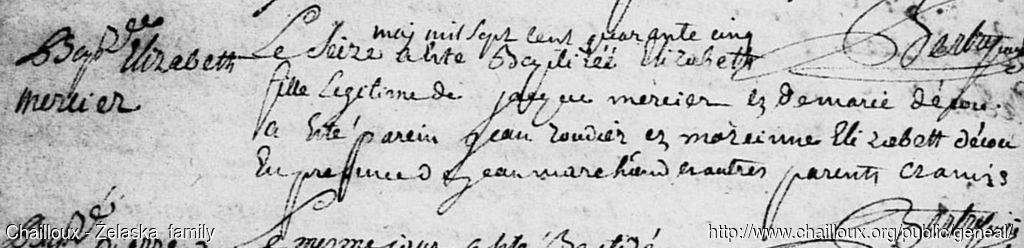 Bapt de Elizabeth
mercier
mai mil sept cent quarante cinq
Le Seize a Esté Baptiséé Elizabeth
fille Legitime de jacque mercier Et De marie décou
a Esté parein jean Roudier Et mareinne Elizabett décou
En presence de jean marchand Et autres parents Et amis
Le mesme jour a esté Baptizé
Chailloux - Żelaska family
http://www.chailloux.org/public/geneall/